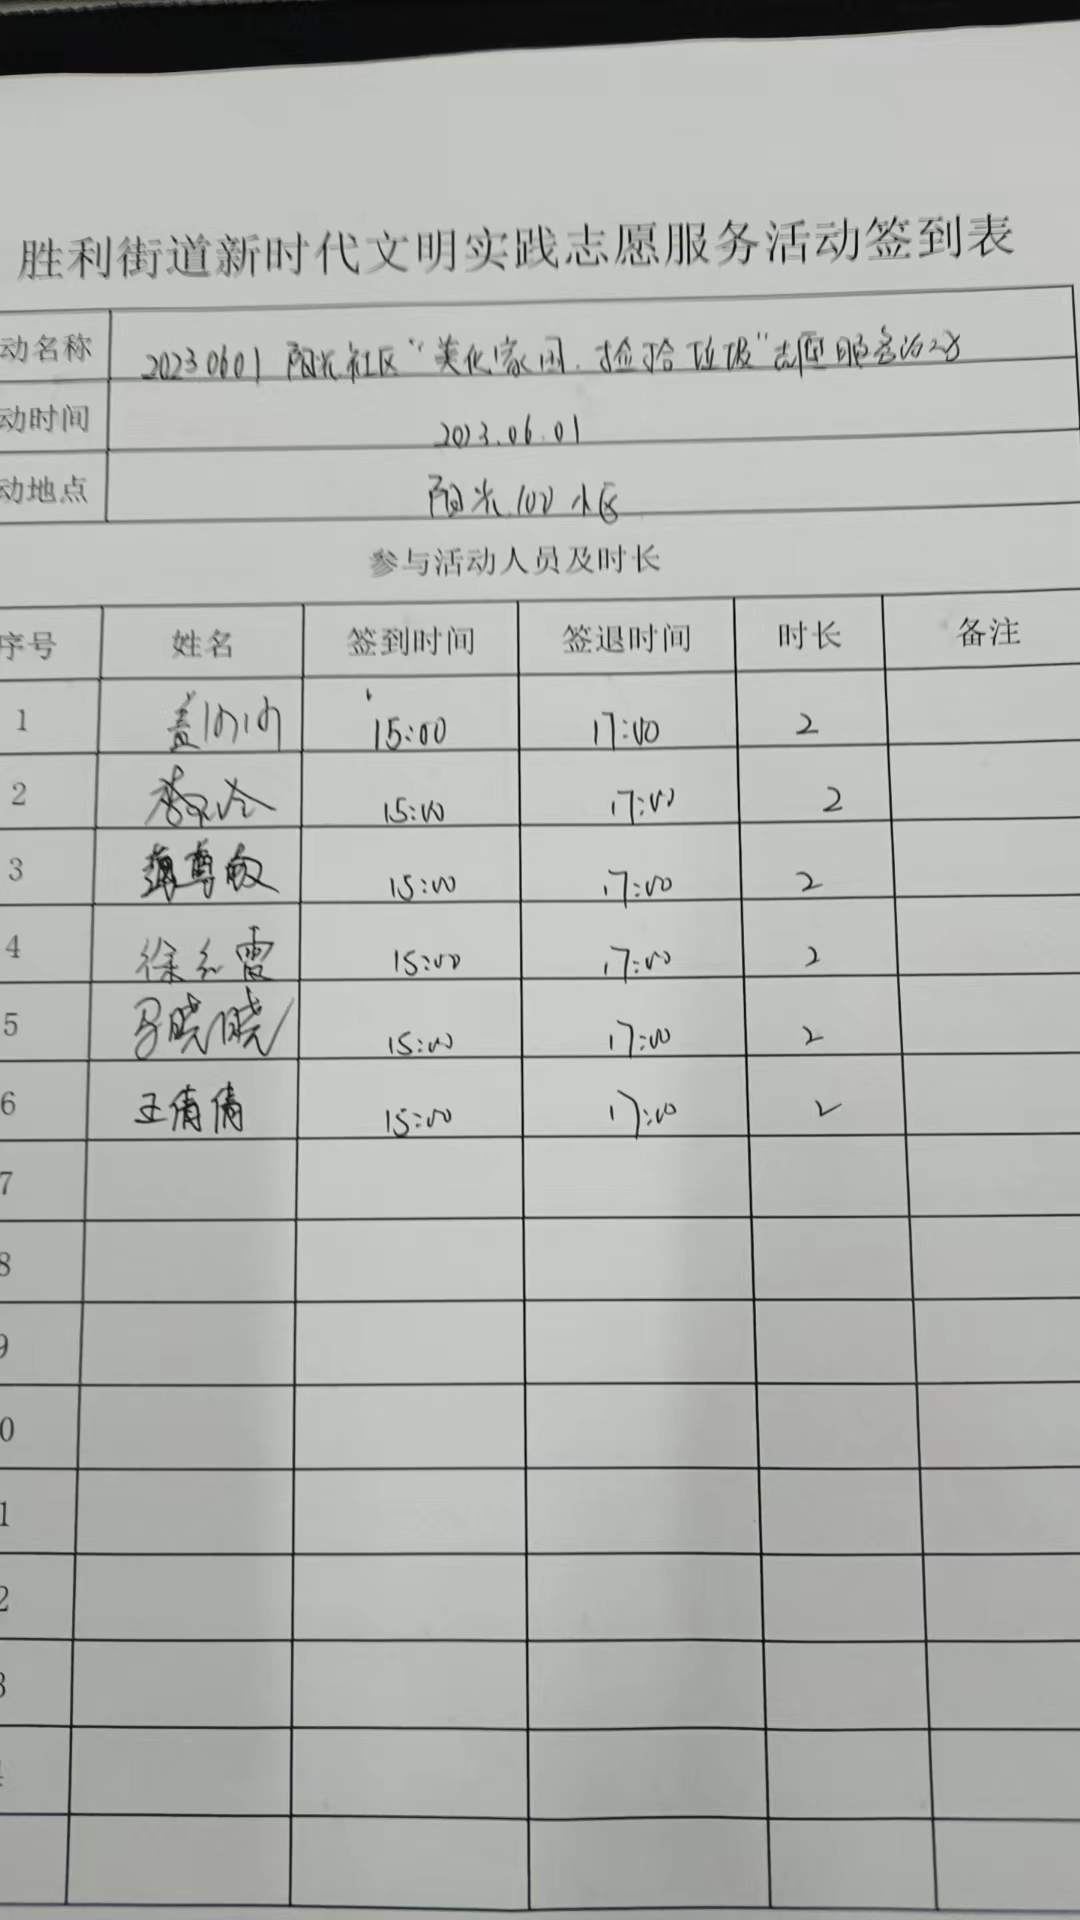 胜利街道新时代文明实践志愿服务活动签到表
动名称 20230601 阳光社区“美化家园、捡拾垃圾”志愿服务活动
动时间 2023.06.01
动地点 阳光100小区
参与活动人员及时长
序号 姓名 签到时间 签退时间 时长 备注
1 15:00 17:00 2
2 15:00 17:00 2
3 15:00 17:00 2
4 徐红霞 15:00 17:00 2
5 马晓晓 15:00 17:00 2
6 王倩倩 15:00 17:00 2
7
8
9
0
1
2
3